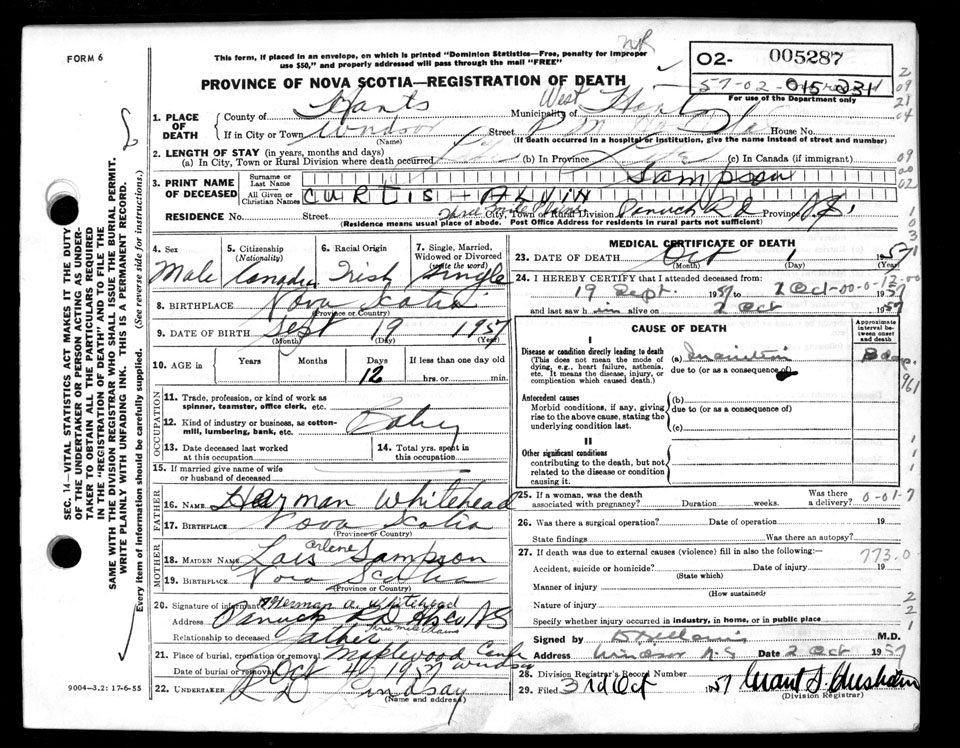 FORM 6
This form, if placed in an envelope, on which is printed "Dominion Statistics—Free, penalty for improper
use $50," and properly addressed will pass through the mail "FREE"
NR
PROVINCE OF NOVA SCOTIA—REGISTRATION OF DEATH
02- 005287
57-02-015231
For use of the Department only
1. PLACE OF DEATH
County of Hants Municipality of West Hants
If in City or Town Windsor Street House No.
(Name) (If death occurred in a hospital or institution, give name instead of street and number)
2. LENGTH OF STAY (in years, months and days)
(a) In City, Town or Rural Division where death occurred Life (b) In Province Life (c) In Canada (if immigrant)
3. PRINT NAME OF DECEASED
Surname or Last Name Sampson
All Given or Christian Names CURTIS ALVIN
RESIDENCE No. Street City, Town or Rural Division Province N.S.
(Residence means usual place of abode. Post Office Address for residents in rural parts not sufficient)
4. Sex Male
5. Citizenship (Nationality) Canadian
6. Racial Origin Irish
7. Single, Married, Widowed or Divorced (write the word) Single
8. BIRTHPLACE Nova Scotia
(Province or Country)
9. DATE OF BIRTH Sept 19 1957
(Month) (Day) (Year)
10. AGE in Years Months Days 12 If less than one day old hrs. or min.
OCCUPATION
11. Trade, profession, or kind of work as spinner, teamster, office clerk, etc.
12. Kind of industry or business, as cotton-mill, lumbering, bank, etc. Baby
13. Date deceased last worked at this occupation
14. Total yrs. spent in this occupation
15. If married give name of wife or husband of deceased
FATHER
16. NAME Herman Whitehead
17. BIRTHPLACE Nova Scotia
(Province or Country)
MOTHER
18. MAIDEN NAME Lois Arlene Sampson
19. BIRTHPLACE Nova Scotia
(Province or Country)
20. Signature of informant Herman A. Whitehead
Address
Three Mile Plains
Relationship to deceased Father
21. Place of burial, cremation or removal Maplewood Windsor
Date of burial or removal Oct 4 1957
22. UNDERTAKER Lindsay
(Name and address)
MEDICAL CERTIFICATE OF DEATH
23. DATE OF DEATH Oct 1 1957
(Month) (Day) (Year)
24. I HEREBY CERTIFY that I attended deceased from:
19 Sept. 1957 to 2 Oct 1957
and last saw him alive on 2 Oct 1957
CAUSE OF DEATH
Approximate interval between onset and death
I
Disease or condition directly leading to death
(This does not mean the mode of dying, e.g., heart failure, asthenia, etc. It means the disease, injury, or complication which caused death.)
(a) Inanition
due to (or as a consequence of)
Antecedent causes
Morbid conditions, if any, giving rise to the above cause, stating the underlying condition last.
(b)
due to (or as a consequence of)
(c)
II
Other significant conditions
contributing to the death, but not related to the disease or condition causing it.
25. If a woman, was the death associated with pregnancy? Duration weeks. Was there a delivery?
26. Was there a surgical operation? Date of operation 19
State findings Was there an autopsy?
27. If death was due to external causes (violence) fill in also the following:
773.0
Accident, suicide or homicide? Date of injury 19
(State which)
Manner of injury
(How sustained)
Nature of injury
Specify whether injury occurred in industry, in home, or in public place
Signed by M.D.
Address Windsor N.S Date 2 Oct 1957
28. Division Registrar's Record Number
29. Filed 3rd Oct 1957
(Division Registrar)
9004—3.2: 17-6-55
SEC. 14—VITAL STATISTICS ACT MAKES IT THE DUTY
OF THE UNDERTAKER OR PERSON ACTING AS UNDER-
TAKER TO OBTAIN ALL THE PARTICULARS REQUIRED
IN THE "REGISTRATION OF DEATH" AND TO FILE THE
SAME WITH THE DIVISION REGISTRAR WHO SHALL ISSUE THE BURIAL PERMIT.
WRITE PLAINLY WITH UNFADING INK. THIS IS A PERMANENT RECORD.
Every item of information should be carefully supplied. (See reverse side for instructions.)